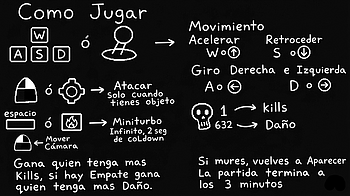 Como Jugar
W
A S D
ó
Movimiento
Acelerar
Retroceder
W o
S o
Giro Derecha e Izquierda
A o
D o
ó
Atacar
Solo cuando
tienes objeto
espacio
ó
Miniturbo
Infinito, 2 seg
de coldown
Mover
Cámara
1 → Kills
632 → Daño
Gana quien tenga mas
Kills, si hay Empate gana
quien tenga mas Daño.
Si mures, vuelves a Aparecer
La partida termina a
los 3 minutos